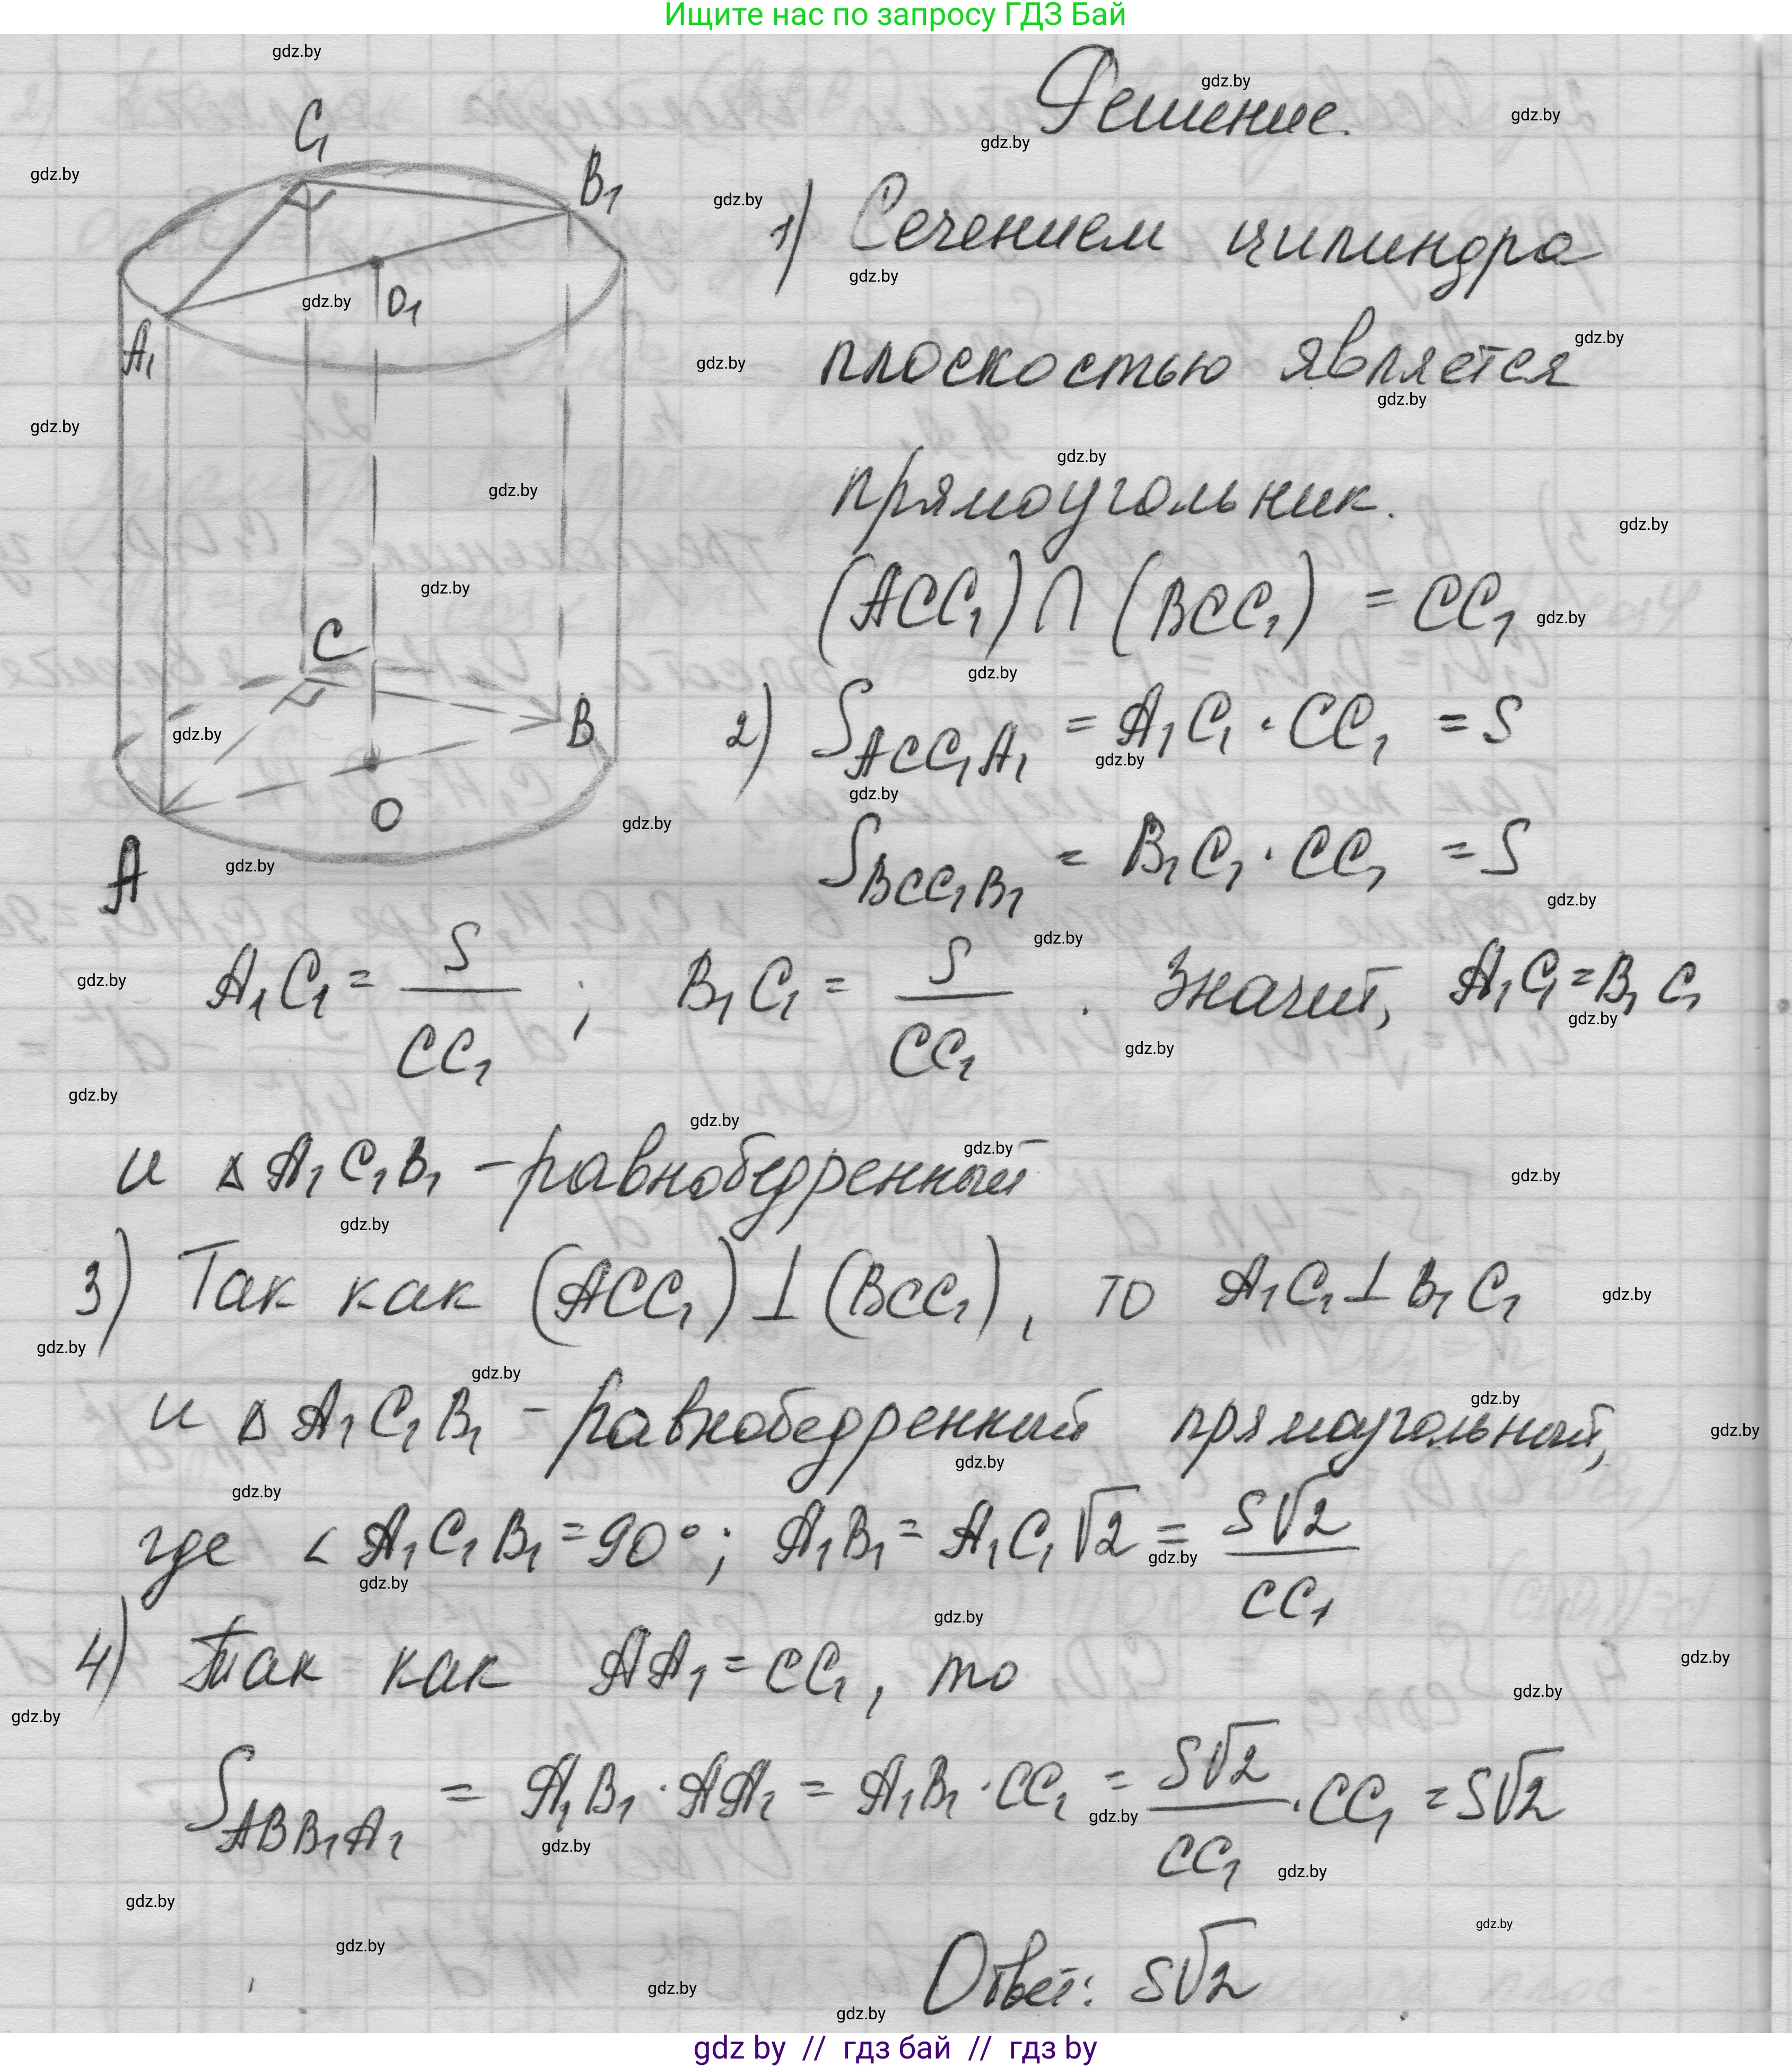 Ищите нас по запросу ГДЗ Бай
Решение.
C₁
B₁
A₁
O₁
C
B
O
A
1) Сечением цилиндра
плоскостью является
прямоугольник.
(ACC₁) ∩ (BCC₁) = CC₁
2) S_ACC₁A₁ = A₁C₁ · CC₁ = S
S_BCC₁B₁ = B₁C₁ · CC₁ = S
A₁C₁ = S/CC₁ ; B₁C₁ = S/CC₁ . Значит, A₁C₁ = B₁C₁
и △A₁C₁B₁ – равнобедренный
3) Так как (ACC₁) ⊥ (BCC₁), то A₁C₁ ⊥ B₁C₁
и △A₁C₁B₁ – равнобедренный прямоугольный,
где ∠A₁C₁B₁ = 90°; A₁B₁ = A₁C₁√2 = S√2/CC₁
4) Так как AA₁ = CC₁, то
S_ABB₁A₁ = A₁B₁ · AA₁ = A₁B₁ · CC₁ = S√2/CC₁ · CC₁ = S√2
Ответ: S√2
gdz by // гдз бай // гдз by